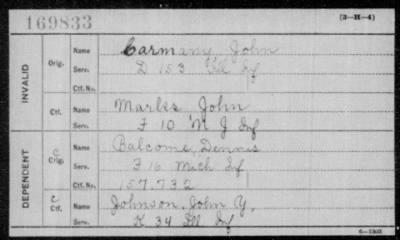 169833
(3-H-4)
INVALID
Orig.
Name Carmany, John
Serv. D 153 Ill Inf
Ctf. No.
Ctf.
Name Marks John
Serv. F 10 N J Inf
DEPENDENT
C Orig.
Name Balcome, Dennis
Serv. F 16 Mich Inf
Ctf. No. 157.732
C Ctf.
Name Johnson, John Y.
Serv. K 34 Ill Inf
6-1303